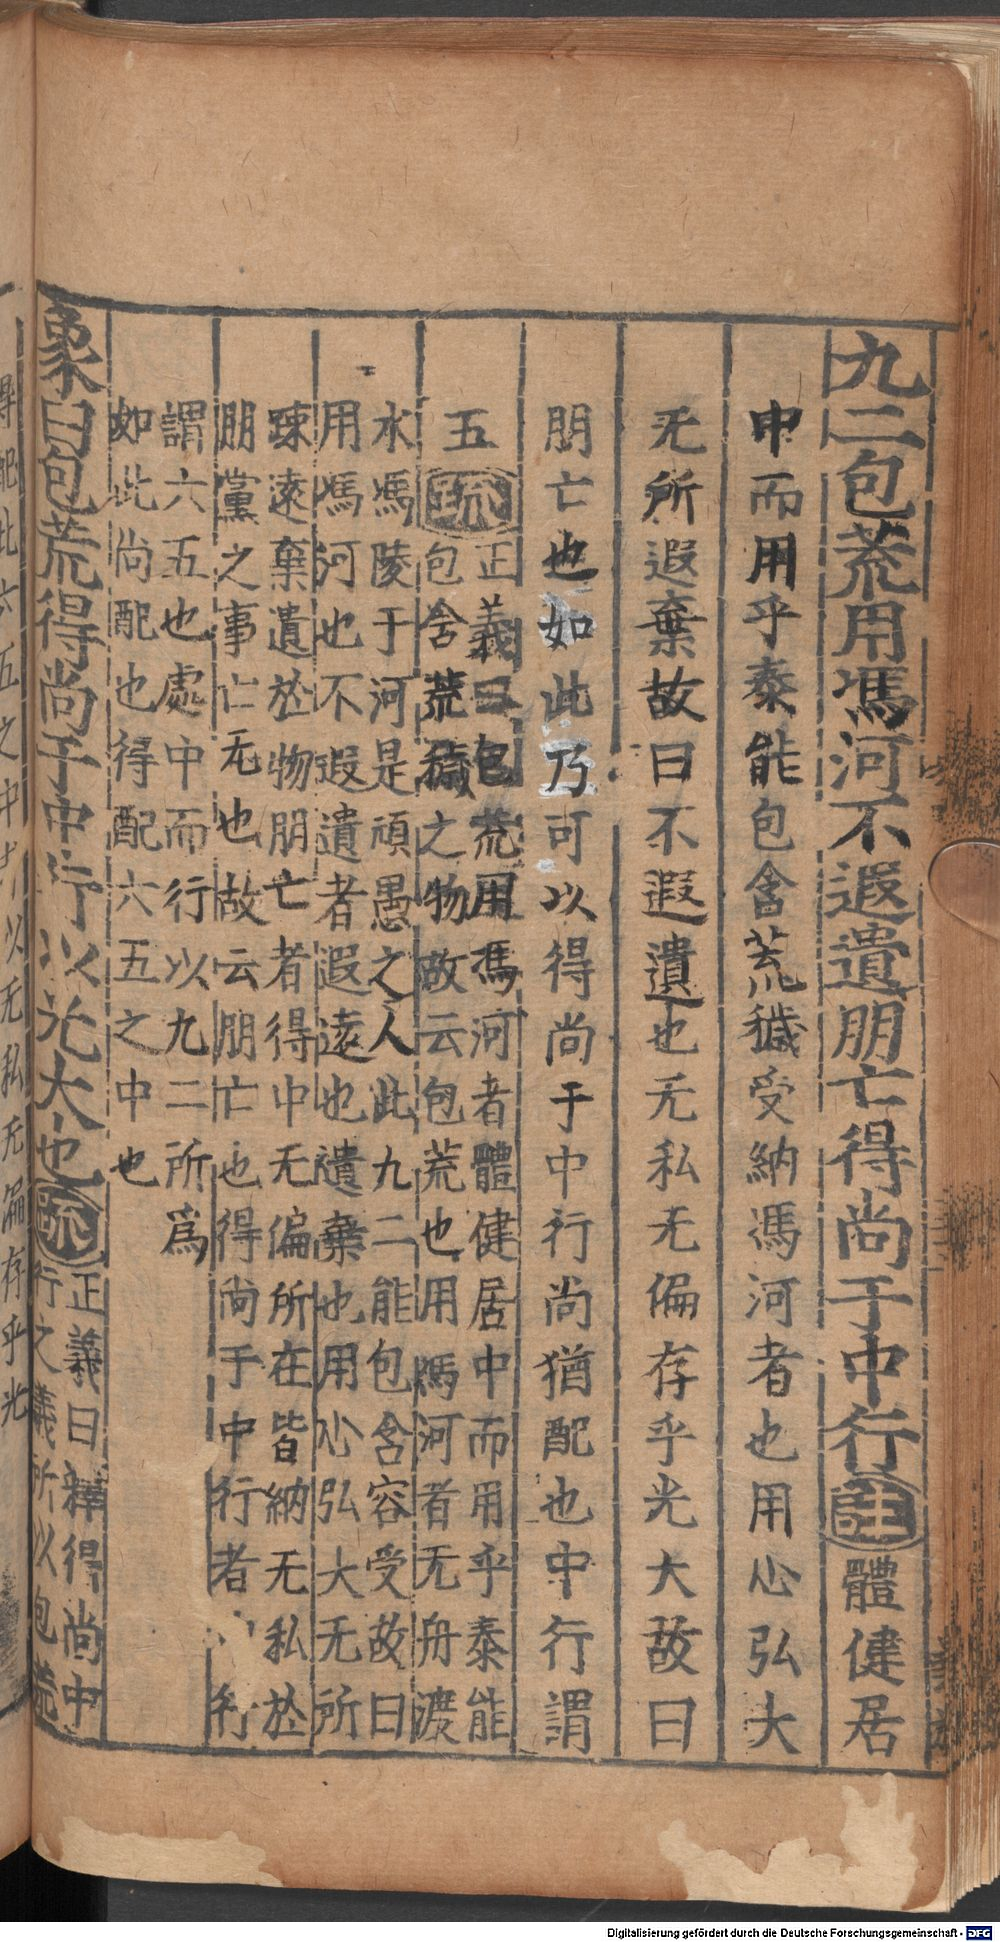 九二包荒用馮河不遐遺朋亡得尚于中行註體健居
中而用乎泰能包含荒穢受納馮河者也用心弘大
无所遐棄故曰不遐遺也无私无偏存乎光大故曰
朋亡也如此乃可以得尚于中行尚猶配也中行謂
五疏正義曰包荒用馮河者體健居中而用乎泰能
包含荒穢之物故云包荒也用馮河者无舟渡
水馮陵于河是頑愚之人此九二能包含容受故曰
用馮河也不遐遺者遐遠也遺棄也用心弘大无所
踈遠棄遺於物朋亡者得中无偏所在皆納无私於
朋黨之事亡无也故云朋亡也得尚于中行者中行
謂六五也處中而行以九二所爲
如此尚配也得配六五之中也
象曰包荒得尚于中行以光大也疏正義曰釋得尚中
行之義所以包荒
得配此六五之中者以无私无偏存乎光
Digitalisierung gefördert durch die Deutsche Forschungsgemeinschaft - DFG